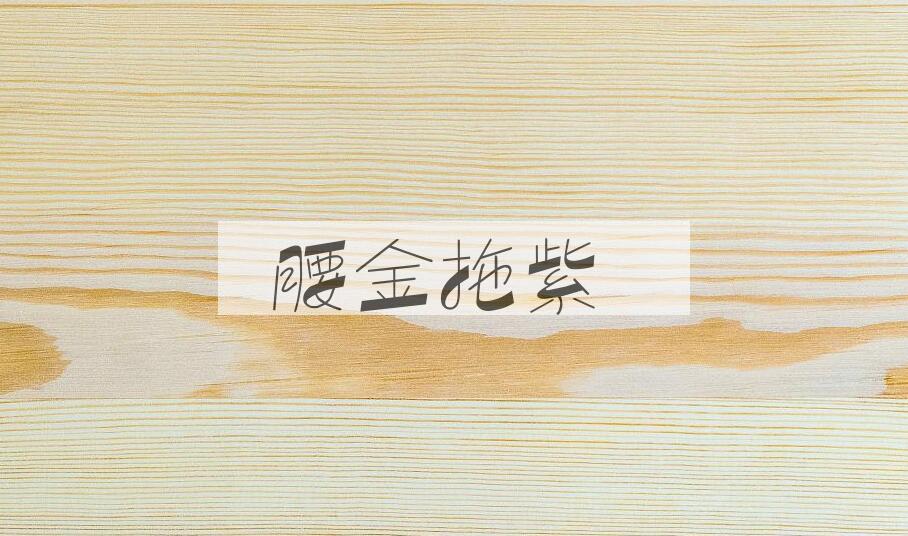 腰金拖紫